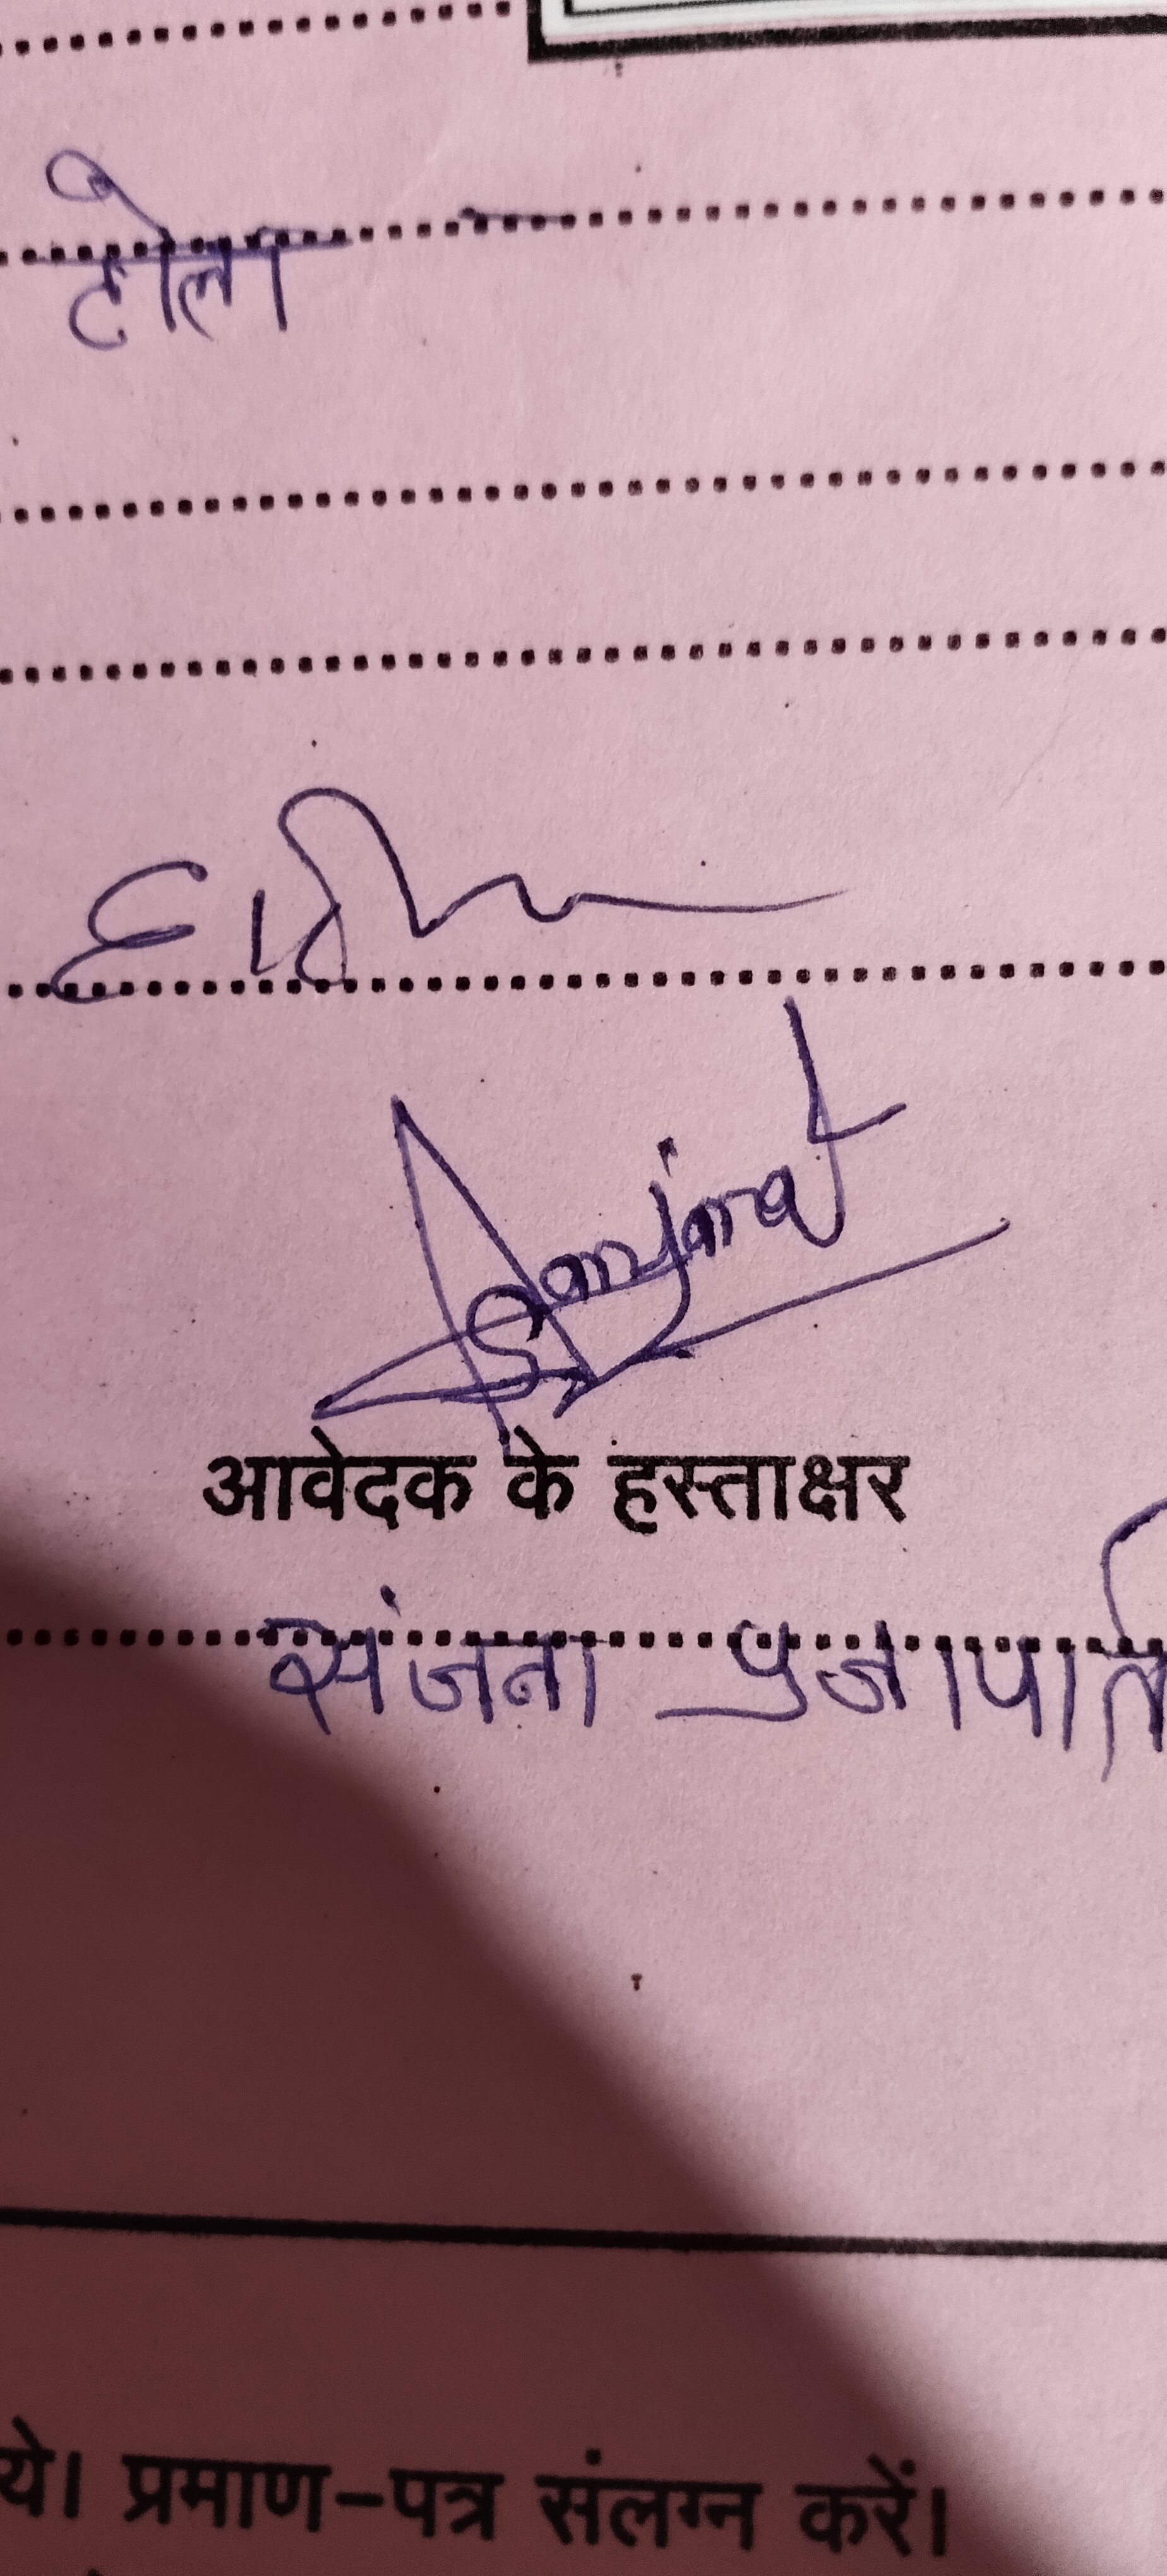 टोला
आवेदक के हस्ताक्षर
संजना प्रजापति
ये। प्रमाण-पत्र संलग्न करें।